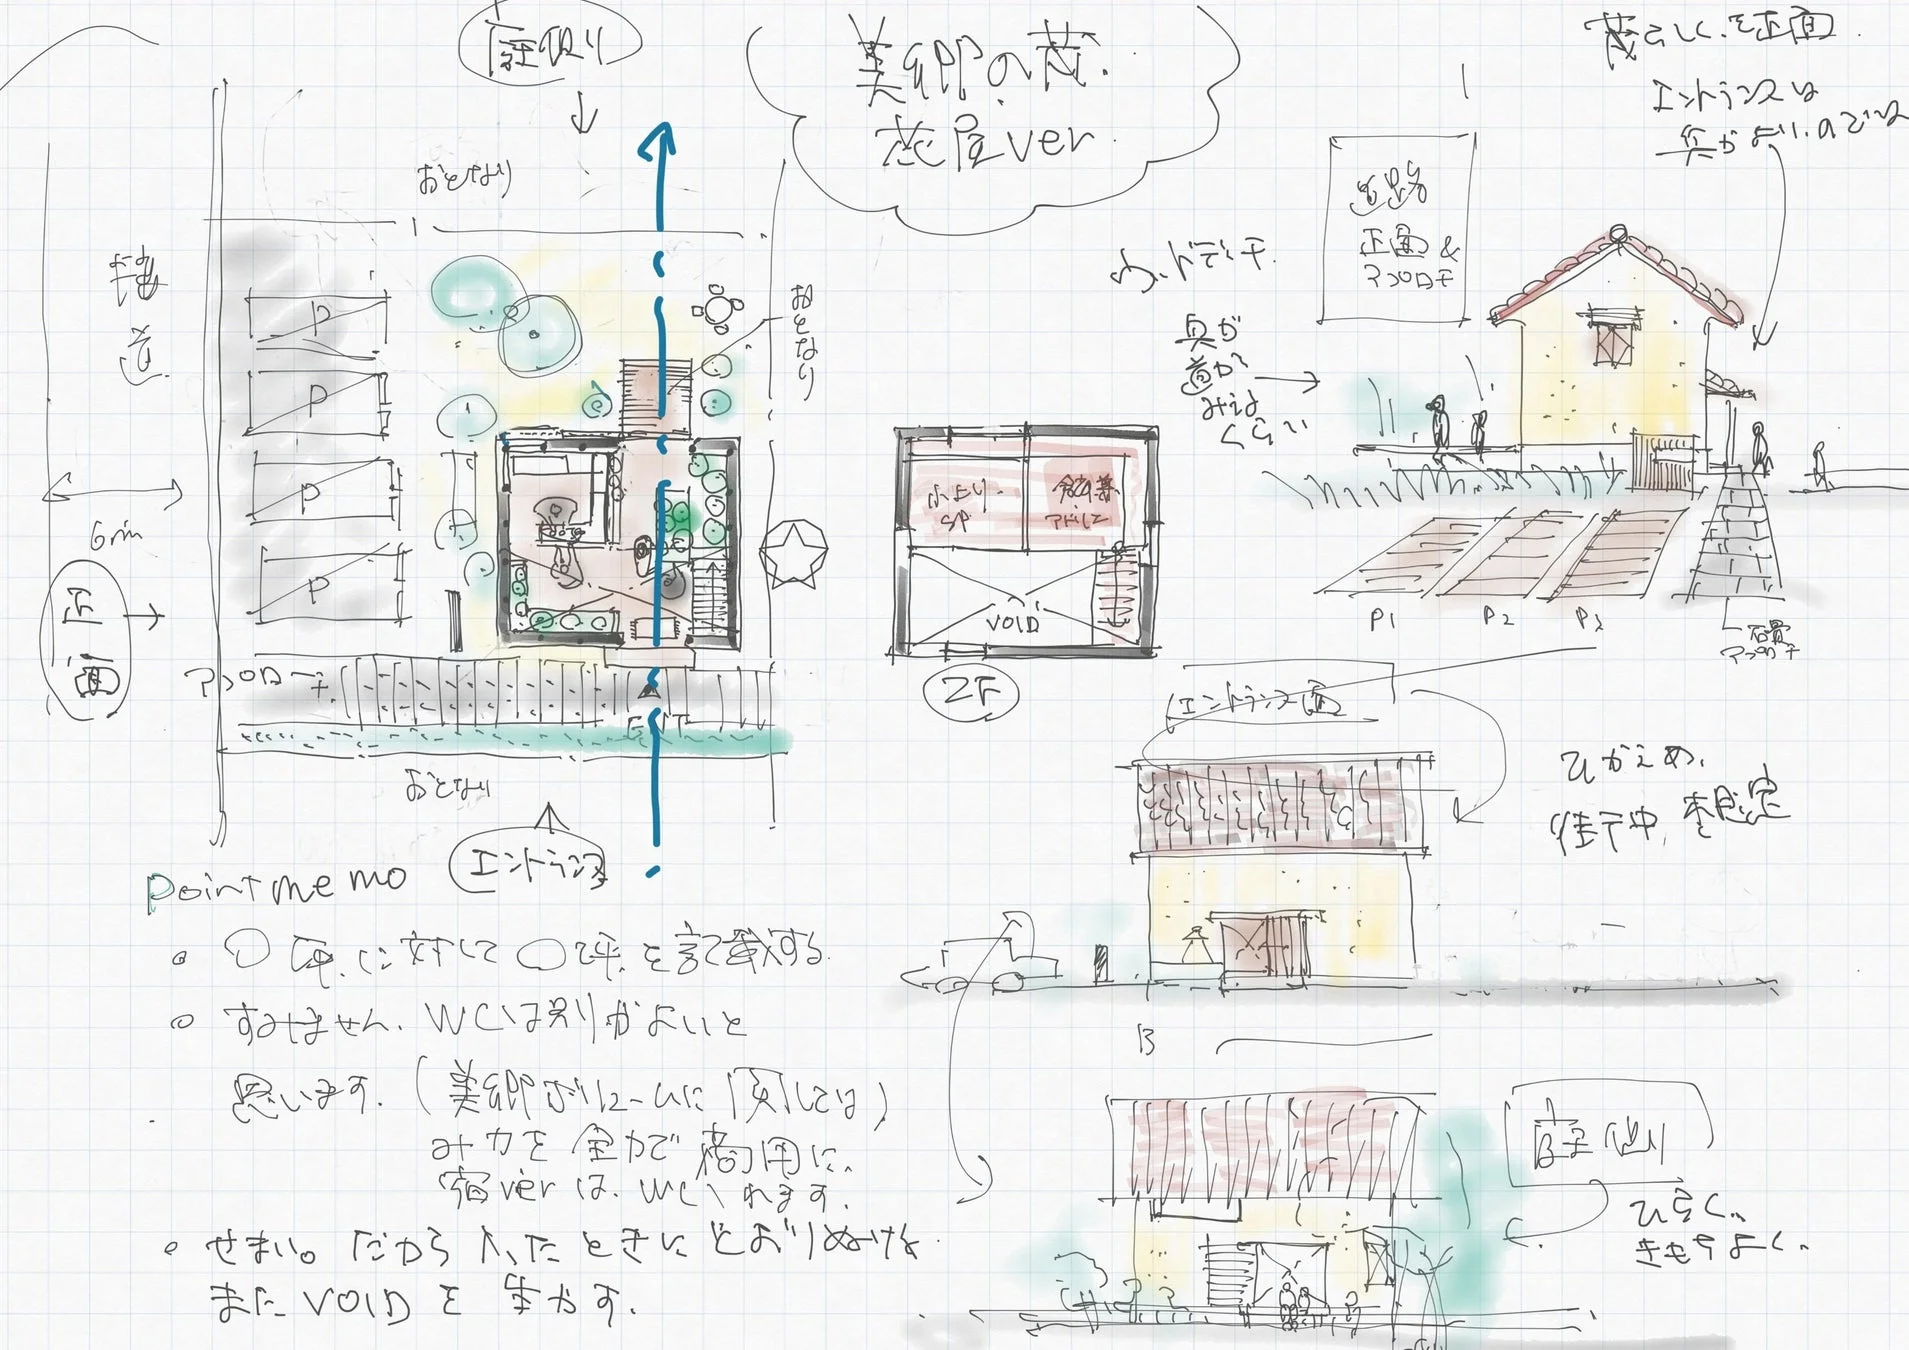 庭側
美郷の蔵.
花屋ver
蔵らしくを正面
エントランスは
奥がよいのでは
おとなり
道路
正面&
アプローチ
ウッドデッキ
奥が
道から
みえる
くらい
おとなり
P
P
P
P
6m
正面
アプローチ
ENT
おとなり
エントランス
VOID
2F
P1
P2
P3
石畳
アプローチ
エントランス面
ひかえめ、
庭側
ひらく、
きもちよく、
point memo
○坪に対して○坪を記載する
すみません、WCは別がよいと
思います。(美郷ボリュームに関しては)
宿verは、WCいれます。
せまい。だから入ったときにとおりぬけを
またVOIDを生かす。